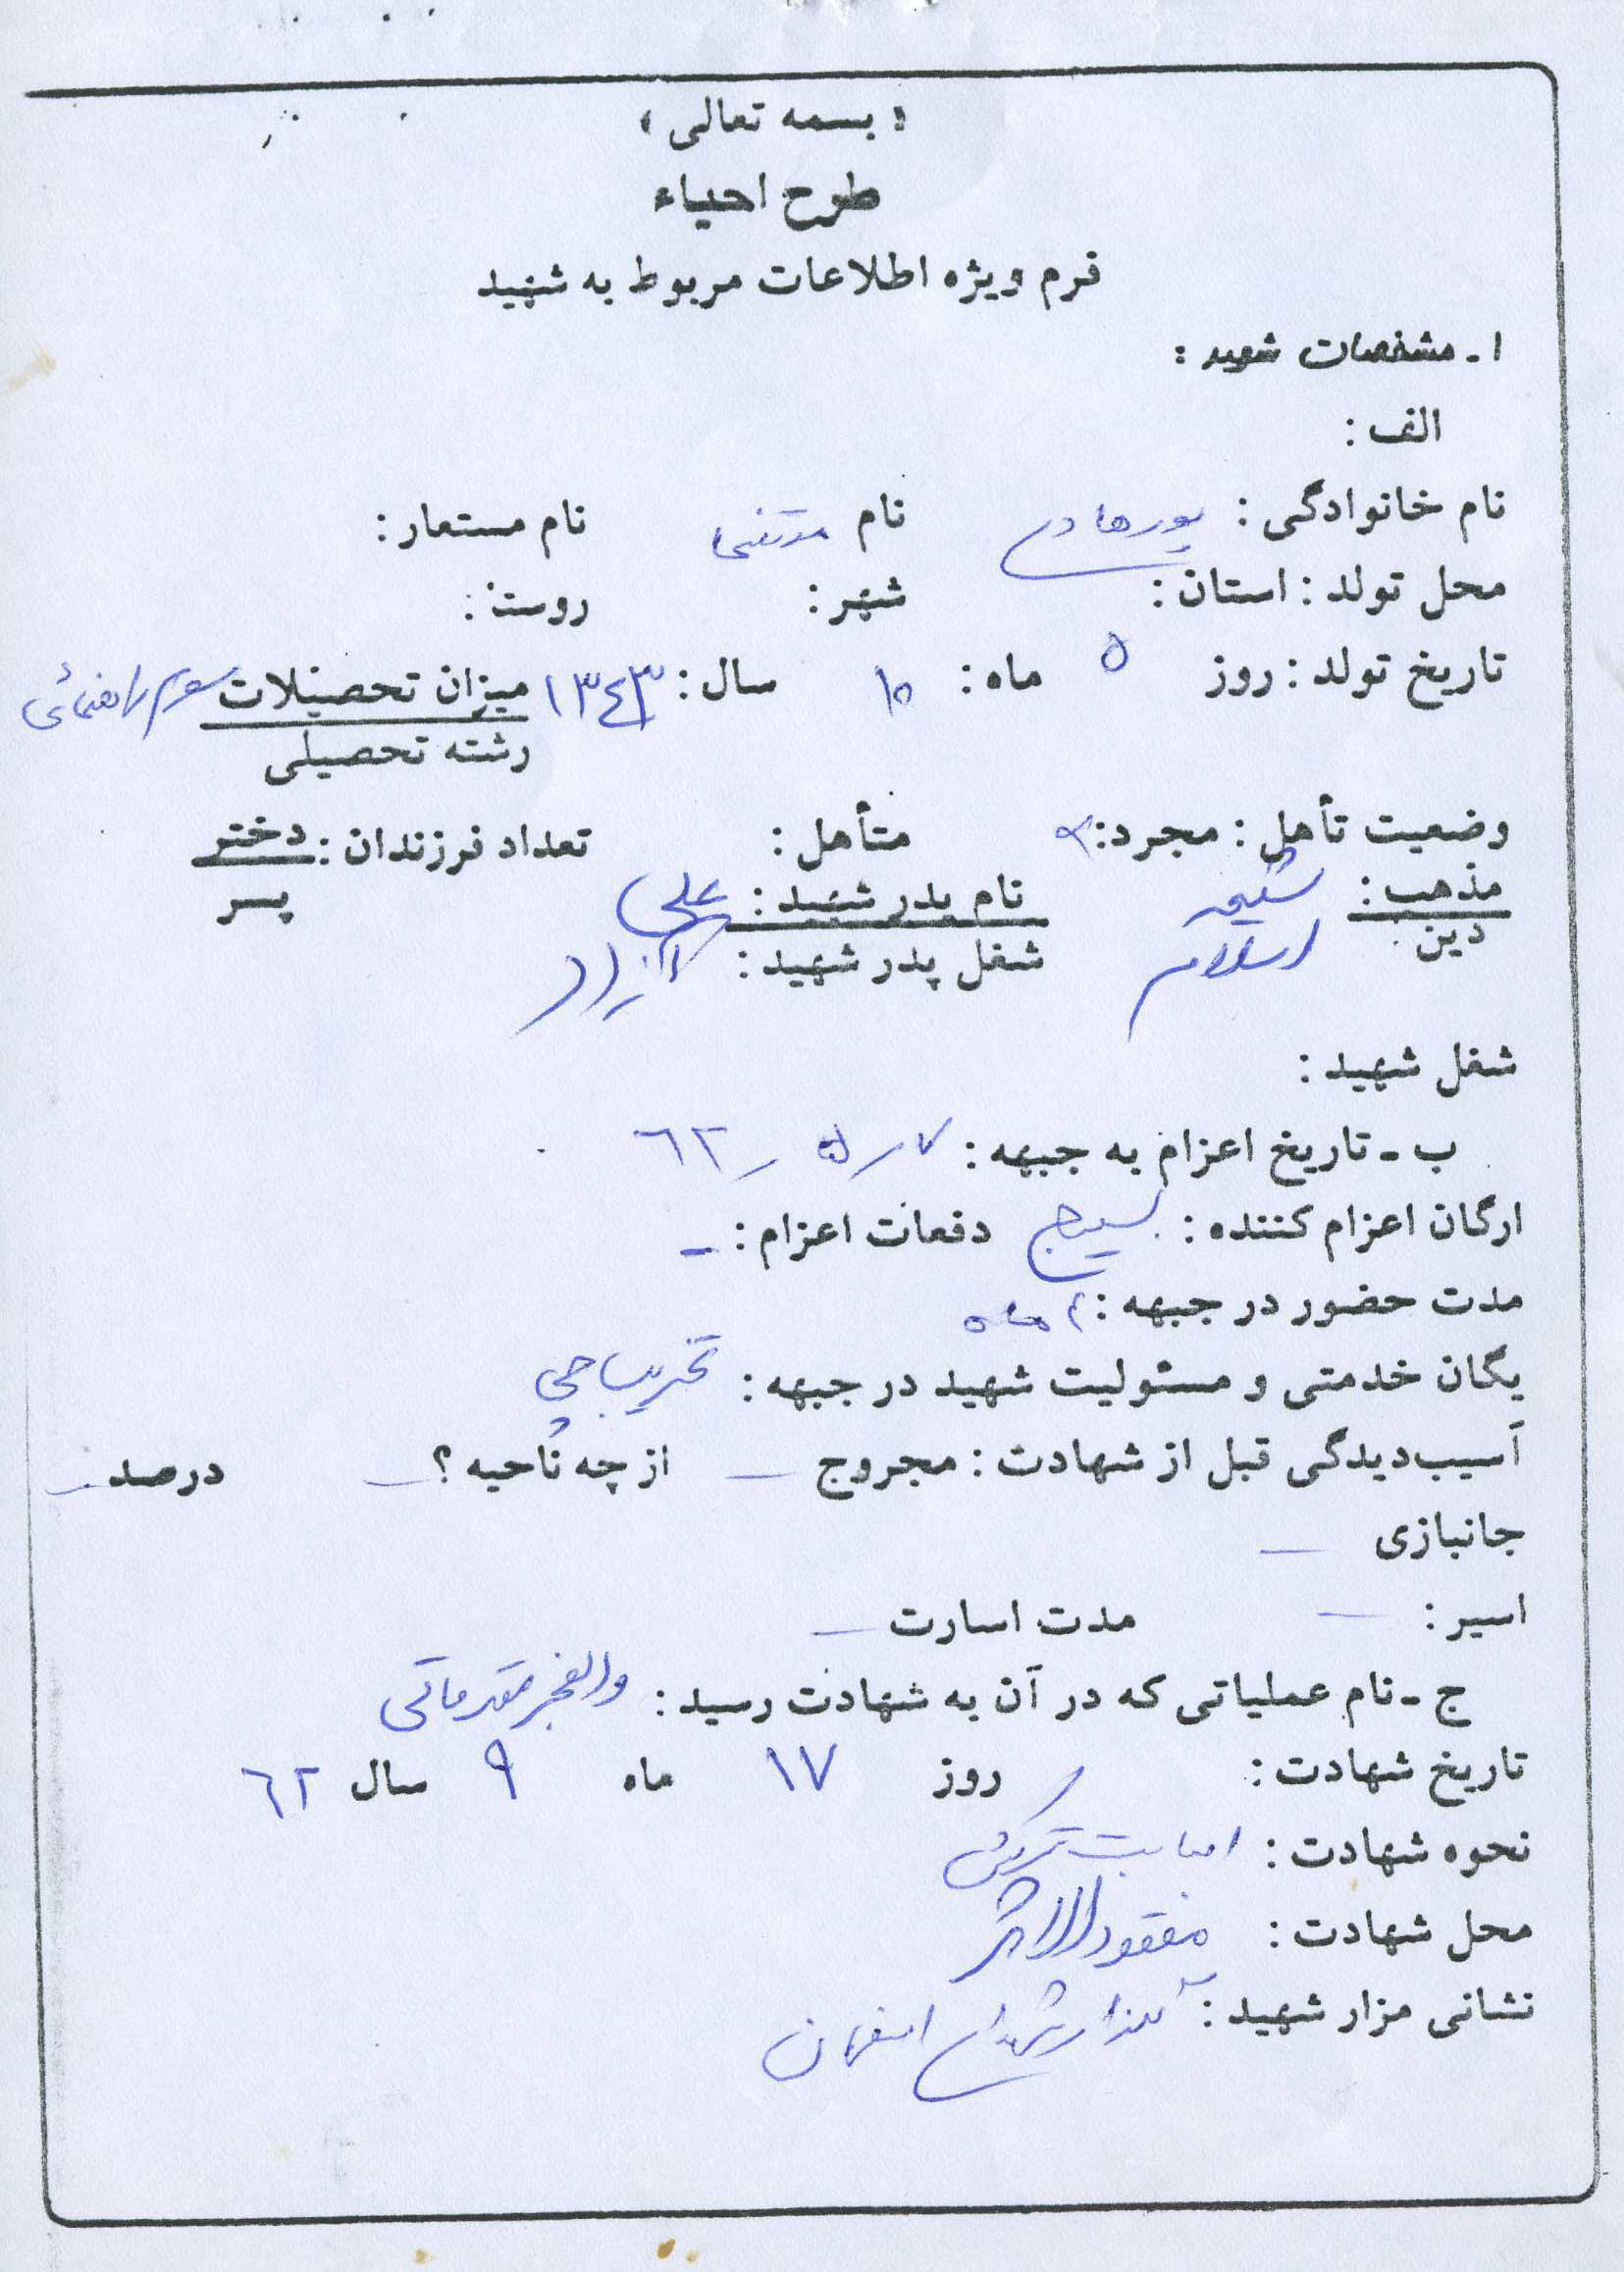 « بسمه تعالی »
طرح احیاء
فرم ویژه اطلاعات مربوط به شهید
۱ - مشخصات شهید :
الف :
نام خانوادگی : پورهادی نام مرتضی نام مستعار :
محل تولد : استان : شهر : روستا :
تاریخ تولد : روز ۵ ماه : ۱۰ سال : ۱۳۴۳ میزان تحصیلات سوم راهنمائی
رشته تحصیلی
وضعیت تأهل : مجرد : متأهل : تعداد فرزندان : دختر
پسر
مذهب : شیعه نام پدر شهید : علی
دین : اسلام شغل پدر شهید : آزاد
شغل شهید :
ب - تاریخ اعزام به جبهه : ۶۲/۵/۷
ارگان اعزام کننده : بسیج دفعات اعزام : -
مدت حضور در جبهه : ماه
یگان خدمتی و مسئولیت شهید در جبهه : تخریب چی
آسیب دیدگی قبل از شهادت : مجروح — از چه ناحیه ؟ — درصد —
جانبازی —
اسیر : — مدت اسارت —
ج - نام عملیاتی که در آن به شهادت رسید : والفجر مقدماتی
تاریخ شهادت : روز ۱۷ ماه ۹ سال ۶۲
نحوه شهادت : اصابت ترکش
محل شهادت : مفقودالاثر
نشانی مزار شهید : گلزار شهدای اصفهان